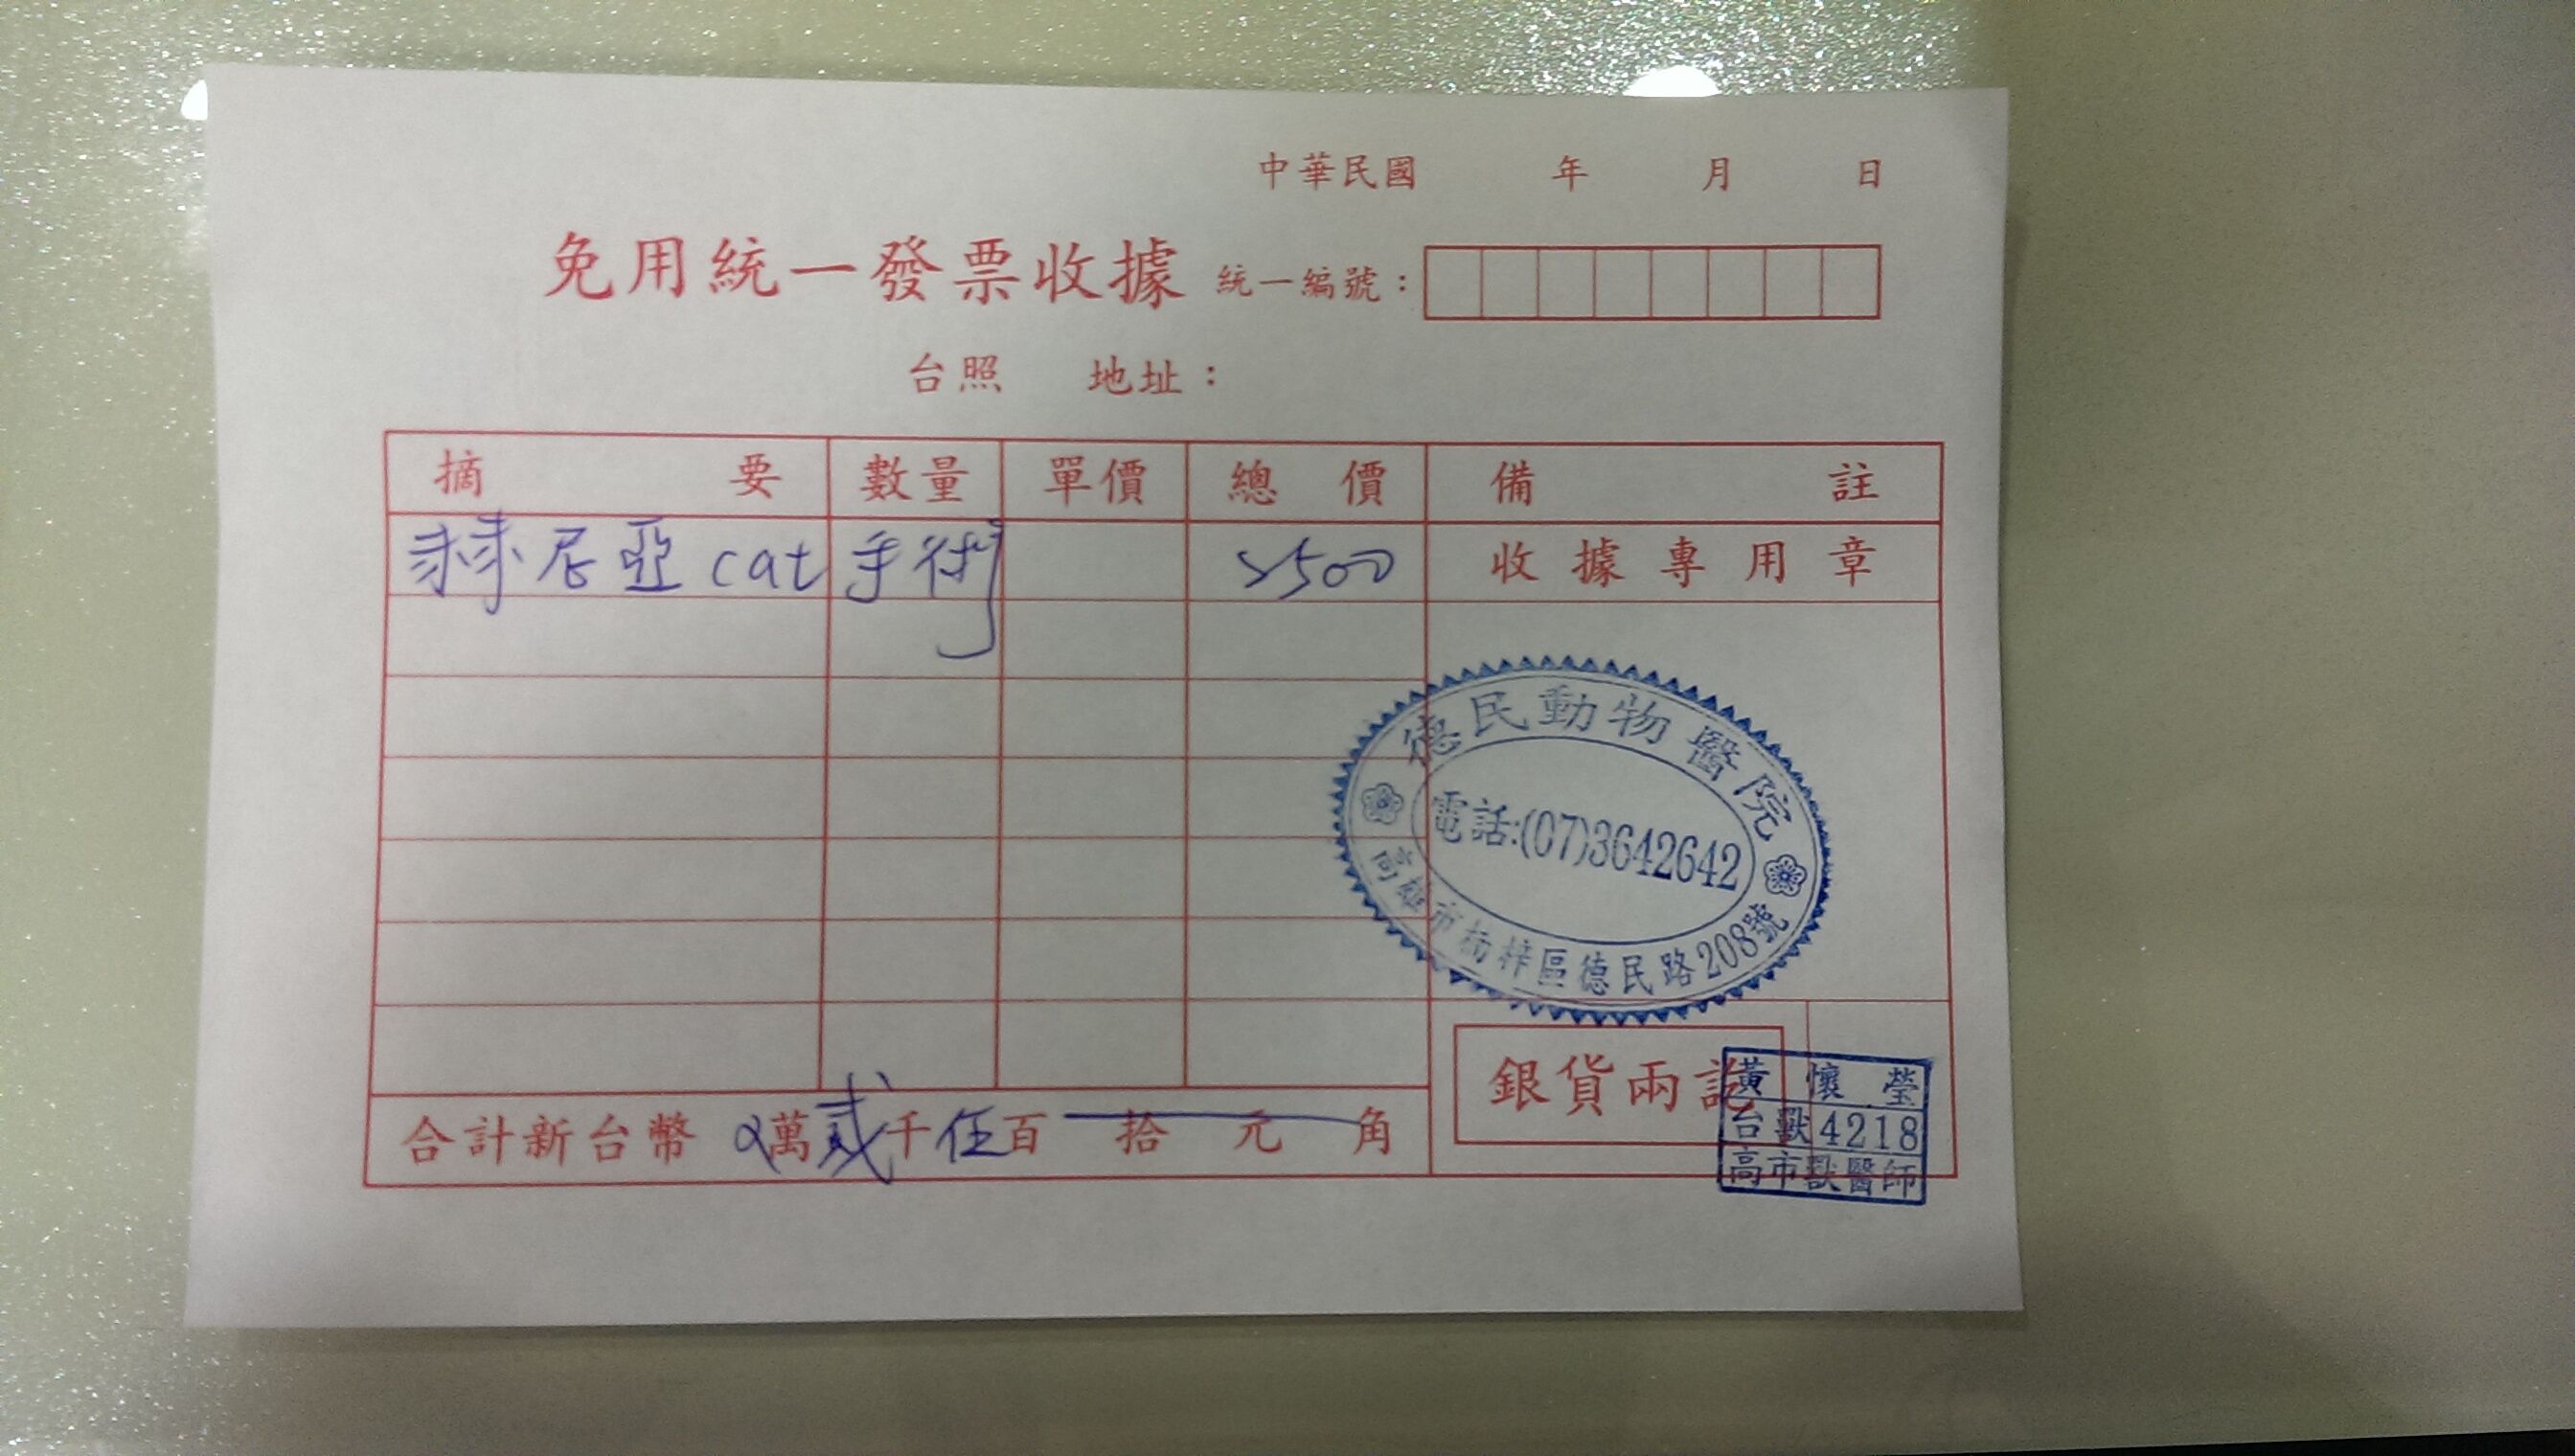 中華民國 年 月 日
免用統一發票收據 統一編號：
台照 地址：
摘要 數量 單價 總價 備註
赫尼亞cat手術 2500 收據專用章
德民動物醫院
電話:(07)3642642
高雄市楠梓區德民路208號
銀貨兩訖
黃懷瑩
台獸4218
高市獸醫師
合計新台幣 萬貳千伍百 拾 元 角